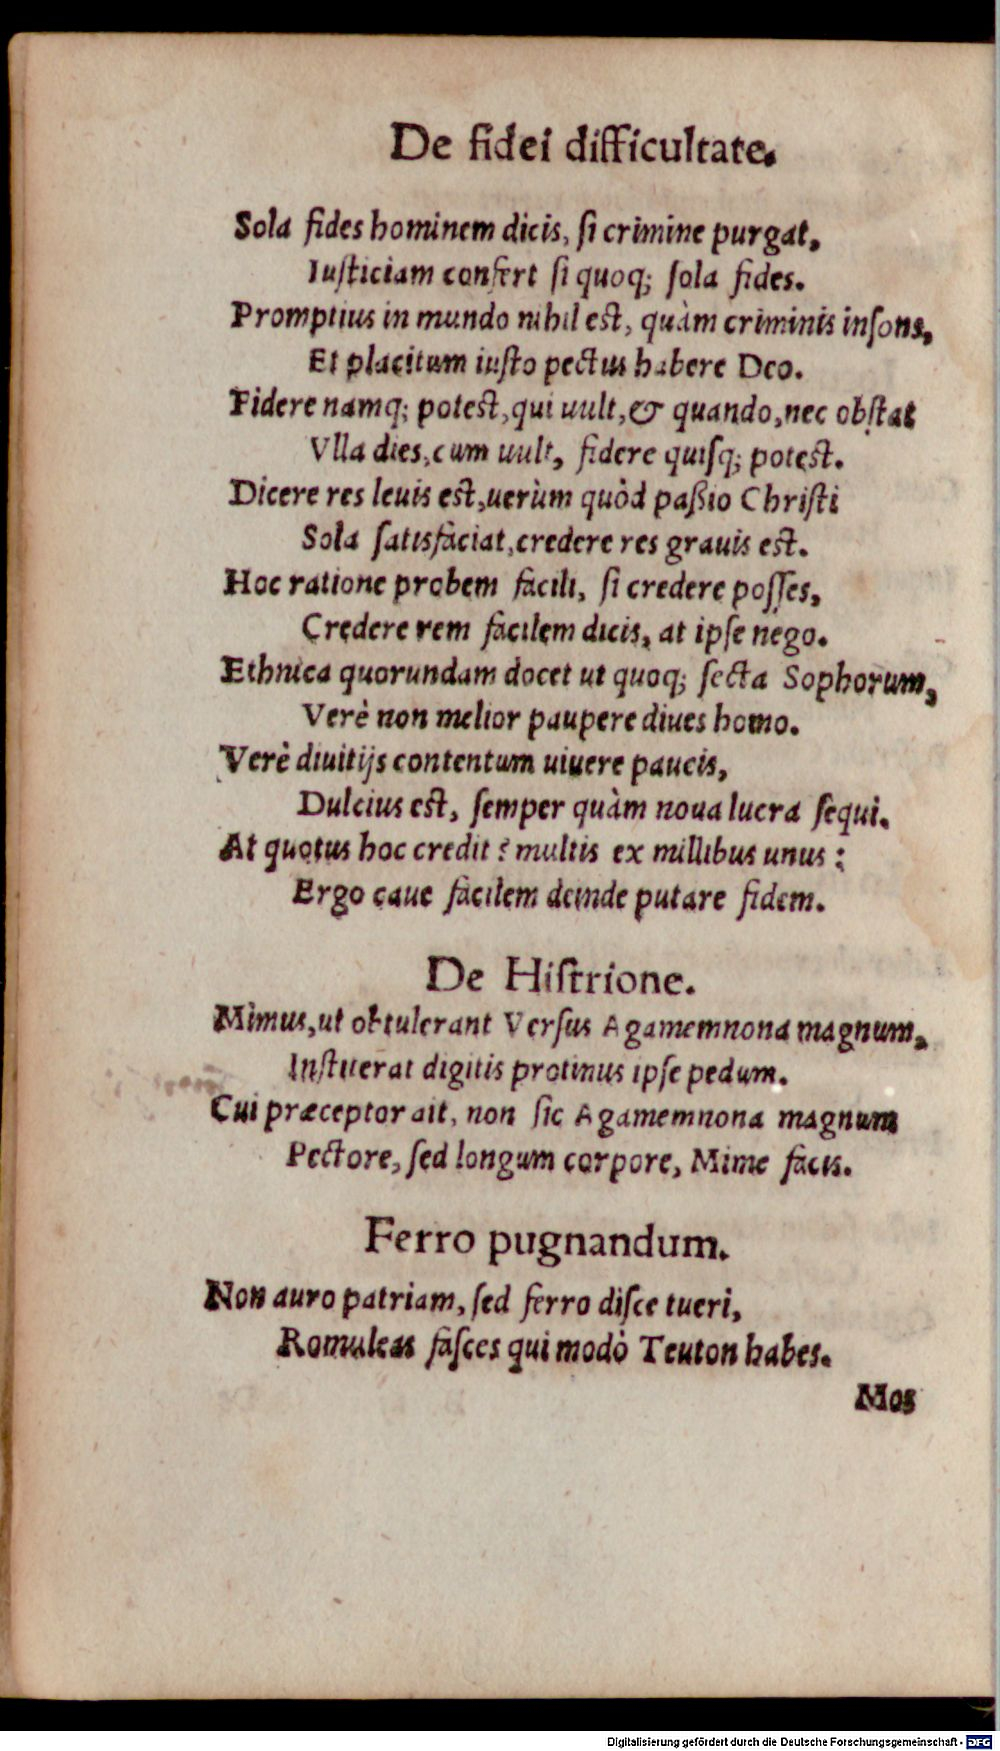 De fidei difficultate.
Sola fides hominem dicis, ſi crimine purgat,
Iuſticiam confert ſi quoq; ſola fides.
Promptius in mundo nihil eſt, quàm criminis inſons,
Et placitum iuſto pectus habere Deo.
Fidere namq; poteſt, qui uult, & quando, nec obſtat
Vlla dies, cum uult, fidere quiſq; poteſt.
Dicere res leuis eſt, uerùm quòd paßio Chriſti
Sola ſatisfaciat, credere res grauis eſt.
Hoc ratione probem facili, ſi credere poſſes,
Credere rem facilem dicis, at ipſe nego.
Ethnica quorundam docet ut quoq; ſecta Sophorum,
Verè non melior paupere diues homo.
Verè diuitijs contentum uiuere paucis,
Dulcius eſt, ſemper quàm noua lucra ſequi.
At quotus hoc credit? multis ex millibus unus:
Ergo caue facilem deinde putare fidem.
De Hiſtrione.
Mimus, ut obtulerant Verſus Agamemnona magnum,
Inſtiterat digitis protinus ipſe pedum.
Cui præceptor ait, non ſic Agamemnona magnum
Pectore, ſed longum corpore, Mime facis.
Ferro pugnandum.
Non auro patriam, ſed ferro diſce tueri,
Romuleas faſces qui modò Teuton habes.
Mos
Digitalisierung gefördert durch die Deutsche Forschungsgemeinschaft - DFG